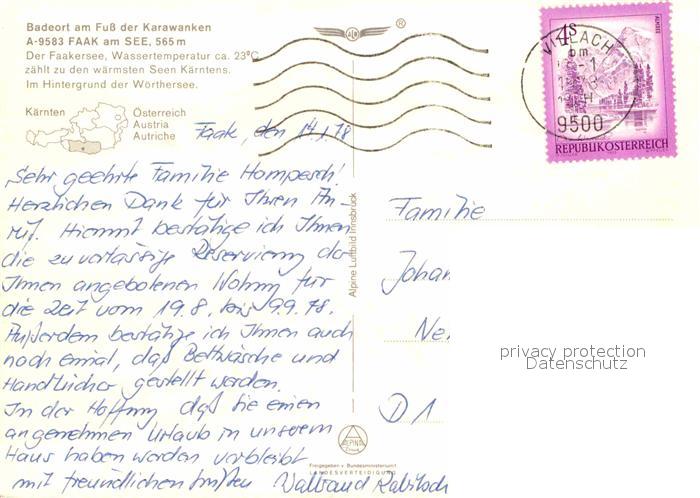 Badeort am Fuß der Karawanken
A-9583 FAAK am SEE, 565 m
Der Faakersee, Wassertemperatur ca. 23°C
zählt zu den wärmsten Seen Kärntens.
Im Hintergrund der Wörthersee.
Kärnten
Österreich
Austria
Autriche
ALD
®
4S
ALMSEE
REPUBLIK ÖSTERREICH
VILLACH
9500
Faak, den 14.1.78
Sehr geehrte Familie Hompesch!
Herzlichen Dank für Ihren An-
ruf. Hiermit bestätige ich Ihnen
die zuverlässige Reservierung der
Ihnen angebotenen Wohnung für
die Zeit vom 19.8. bis 9.9.78.
Außerdem bestätige ich Ihnen auch
noch einmal, daß Bettwäsche und
Handtücher gestellt werden.
In der Hoffnung daß Sie einen
angenehmen Urlaub in unserem
Haus haben werden verbleibt
mit freundlichen Grüßen
Alpine Luftbild Innsbruck
Familie
Johan
Ne
D 1
privacy protection
Datenschutz
ALPINE
Freigegeben v. Bundesministerium f.
LANDESVERTEIDIGUNG